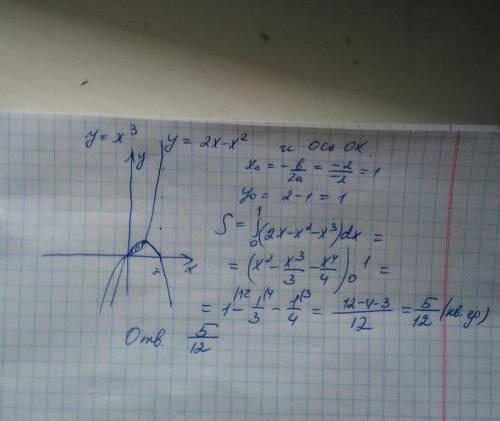 y = x³ y = 2x-x² и ось OX.
y
x₀ = -b/2a = -2/-2 = 1
y₀ = 2-1 = 1
S = ∫₀¹(2x-x²-x³)dx =
= (x² - x³/3 - x⁴/4)|₀¹ =
2 x
= 1|¹² - 1|⁴/3 - 1|³/4 = 12-4-3/12 = 5/12 (кв. ед)
Отв. 5/12